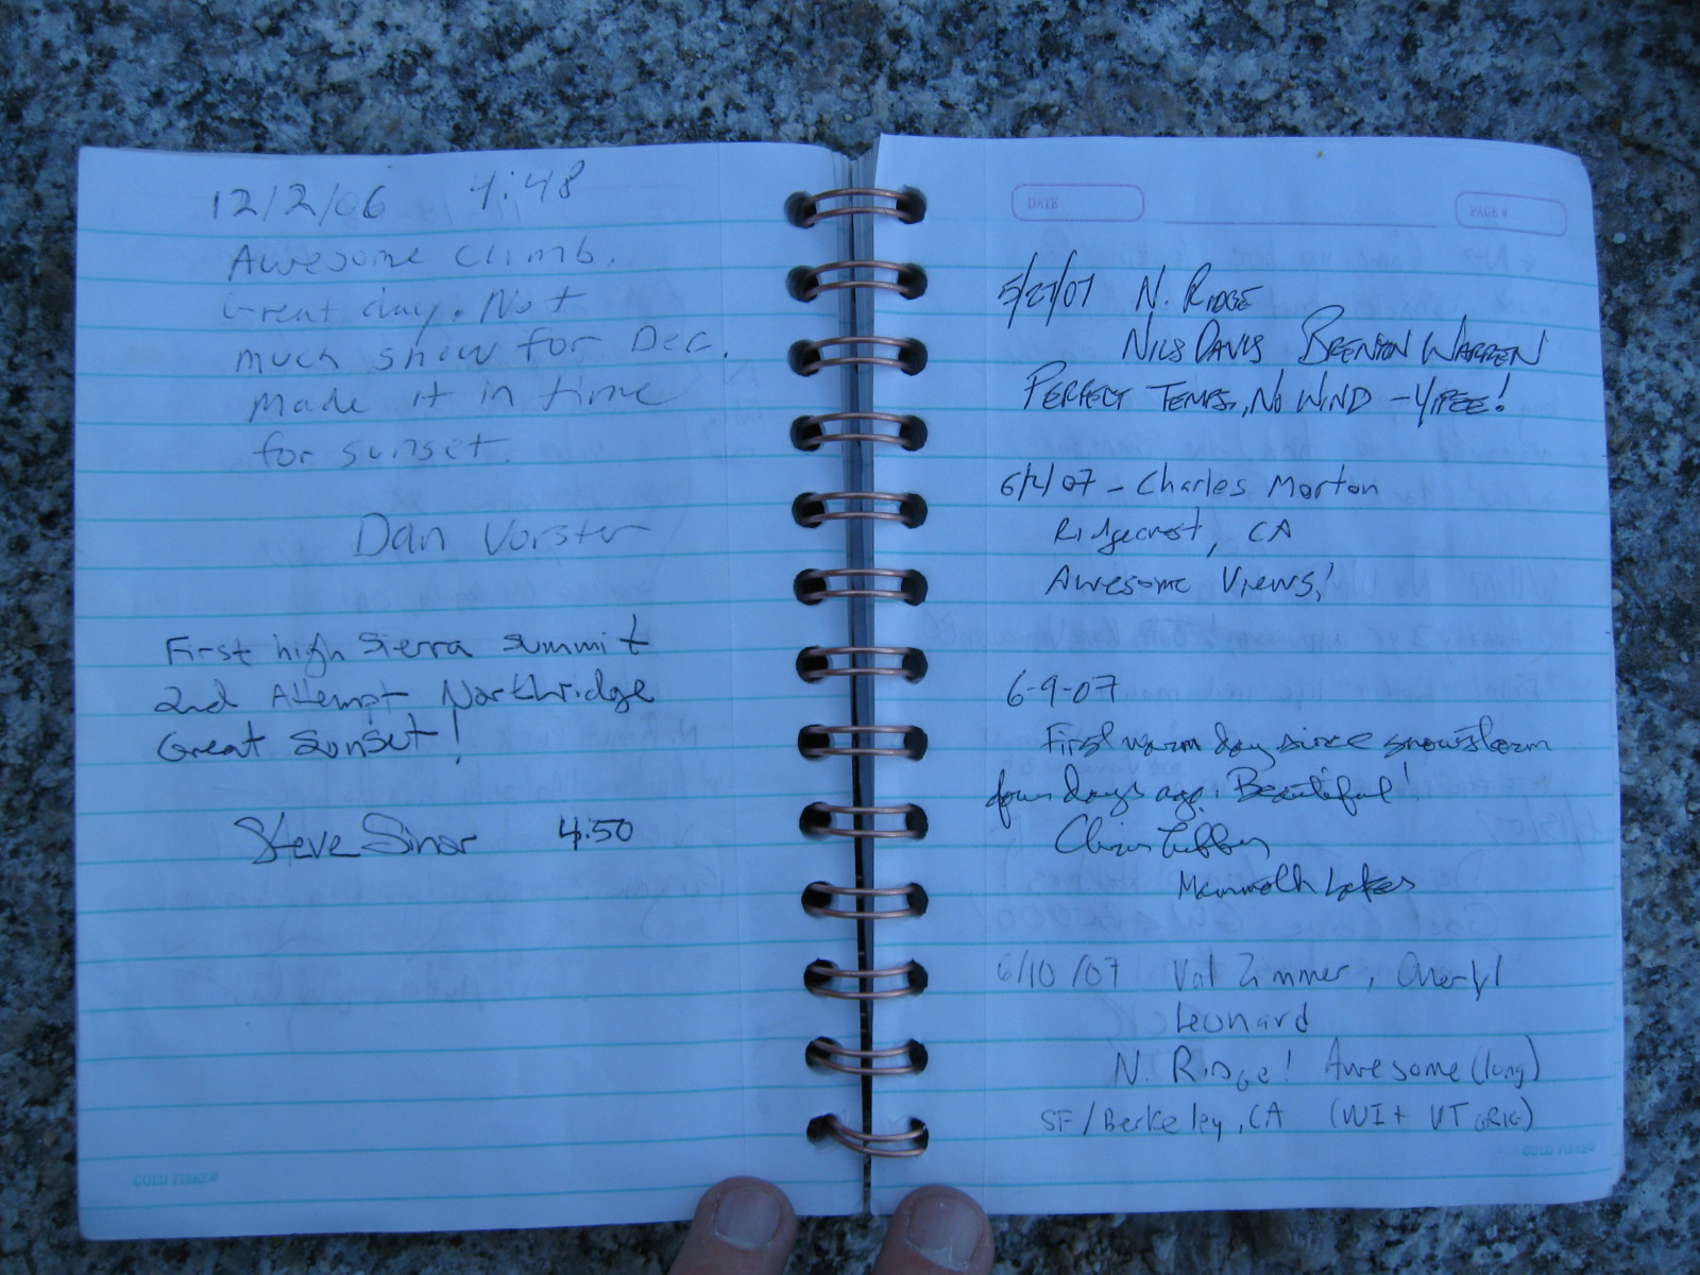 12/2/06 4:48
Awesome climb.
Great day. Not
much snow for Dec.
Made it in time
for sunset.
Dan Vorster
First high Sierra summit
2nd Attempt Northridge
Great Sunset!
Steve Sinor 4:50
DATE
PAGE #
5/27/07 N. RIDGE
NILS DAVIS BRENTON WARREN
PERFECT TEMPS, NO WIND - YIPEE!
6/2/07 - Charles Morton
Ridgecrest, CA
Awesome Views!
6-9-07
First warm day since snowstorm
four days ago. Beautiful!
Mammoth Lakes
6/10/07 Val Zimmer, Cheryl
Leonard
N. Ridge! Awesome (long)
SF/Berkeley, CA (WI + VT ORIG)